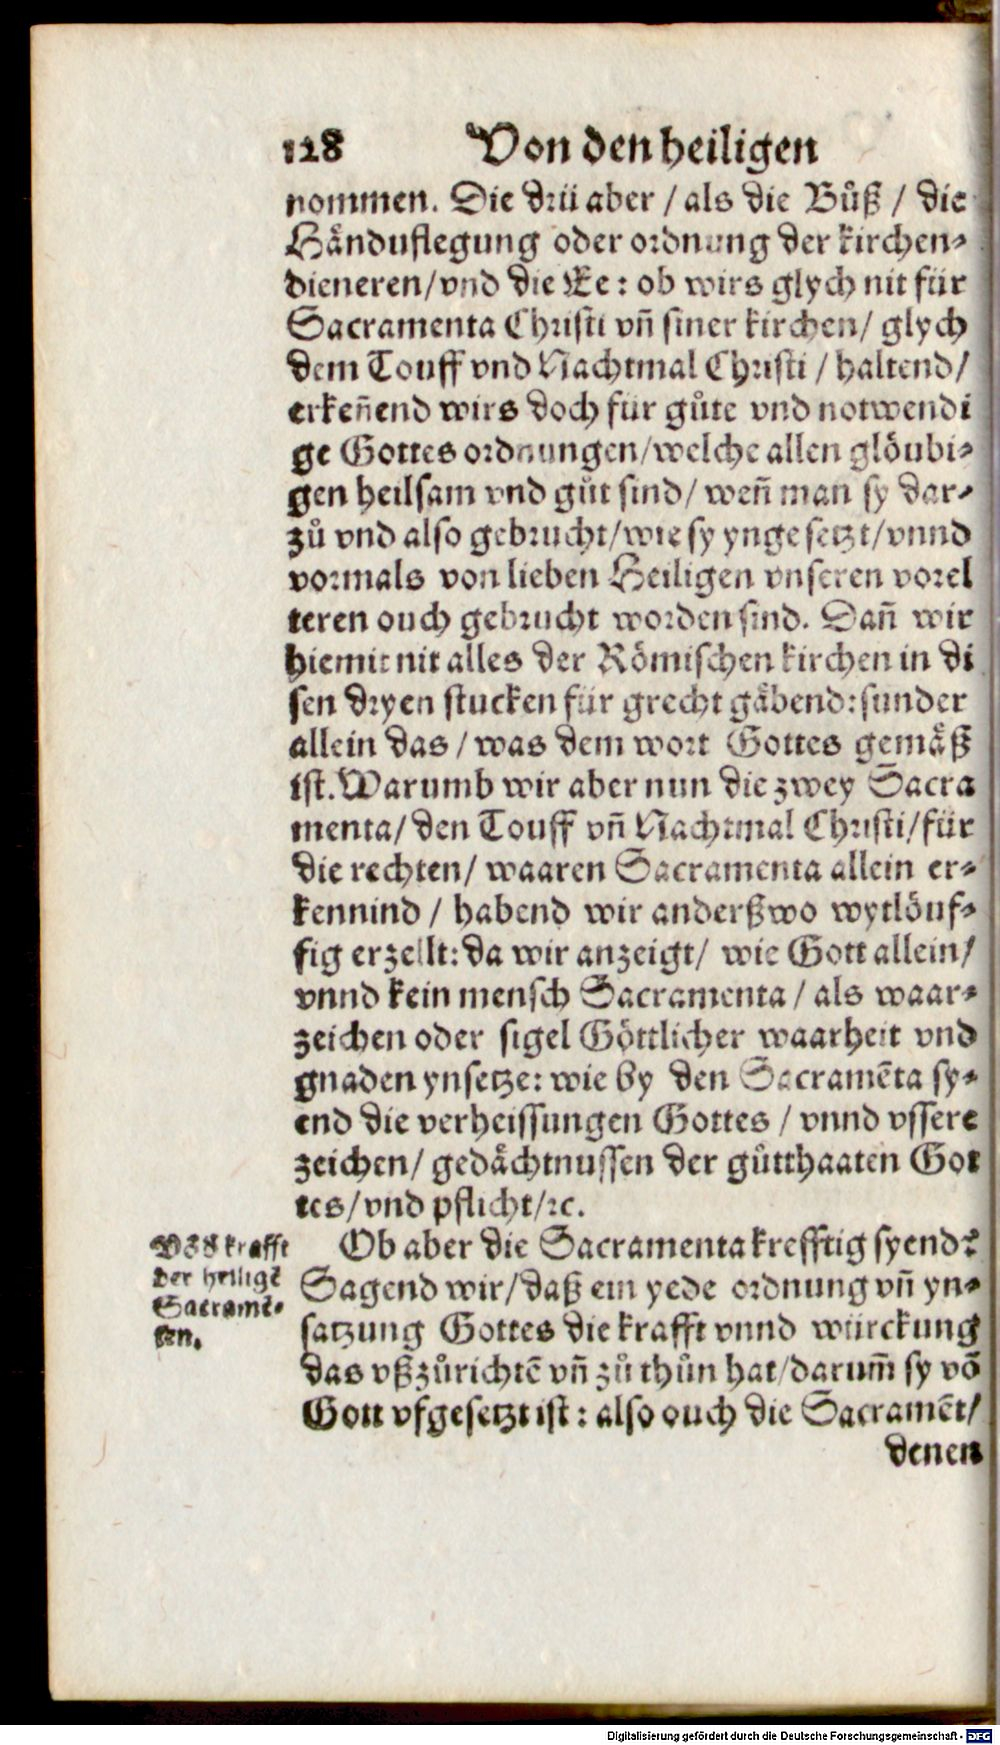 128 Von den heiligen
nommen. Die drü aber / als die Bůß / die
Händuflegung oder ordnung der kirchen⸗
dieneren/vnd die Ee: ob wirs glych nit für
Sacramenta Christi vñ siner kirchen/ glych
dem Touff vnd Nachtmal Christi / haltend/
erkeñend wirs doch für gůte vnd notwendi
ge Gottes ordnungen/welche allen glöubi⸗
gen heilsam vnd gůt sind/ weñ man sy dar⸗
zů vnd also gebrucht/wie sy yngesetzt/vnnd
vormals von lieben Heiligen vnseren vorel
teren ouch gebrucht worden sind. Dañ wir
hiemit nit alles der Römischen kirchen in di
sen dryen stucken für grecht gäbend: sunder
allein das / was dem wort Gottes gemäß
ist. Warumb wir aber nun die zwey Sacra
menta/ den Touff vñ Nachtmal Christi/für
die rechten/ waaren Sacramenta allein er⸗
kennind / habend wir anderßwo wytlöuf⸗
fig erzellt: da wir anzeigt/ wie Gott allein/
vnnd kein mensch Sacramenta / als waar⸗
zeichen oder sigel Göttlicher waarheit vnd
gnaden ynsetze: wie by den Sacramēta sy⸗
end die verheissungen Gottes / vnnd vssere
zeichen/ gedächtnussen der gůtthaaten Got
tes/vnd pflicht/ꝛc.
Ob aber die Sacramenta krefftig syend?
Sagend wir/daß ein yede ordnung vñ yn⸗
satzung Gottes die krafft vnnd würckung
das vßzůrichtē vñ zů thůn hat/darum̄ sy vō
Gott vfgesetzt ist: also ouch die Sacramēt/
denen
Vō d krafft
der heiligē
Sacramē⸗
ten.
Digitalisierung gefördert durch die Deutsche Forschungsgemeinschaft - DFG